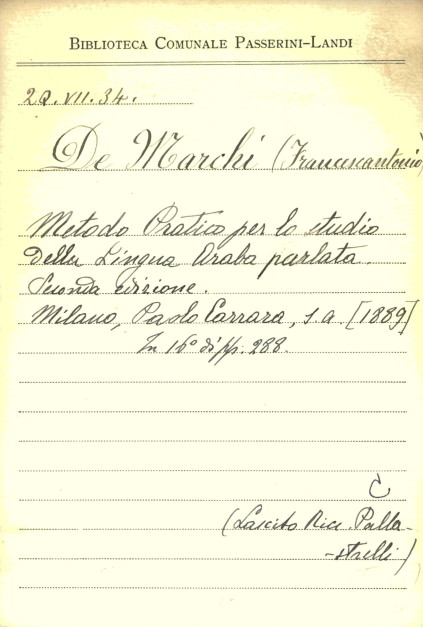 BIBLIOTECA COMUNALE PASSERINI-LANDI
2Q.VII.34.
De Marchi (Francescantonio)
Metodo Pratico per lo studio
della Lingua Araba parlata.
Seconda edizione.
Milano, Paolo Carrara, s.a. [1889]
In 16° di pp. 288.
C
(Lascito Ricc. Palla-
-strelli)